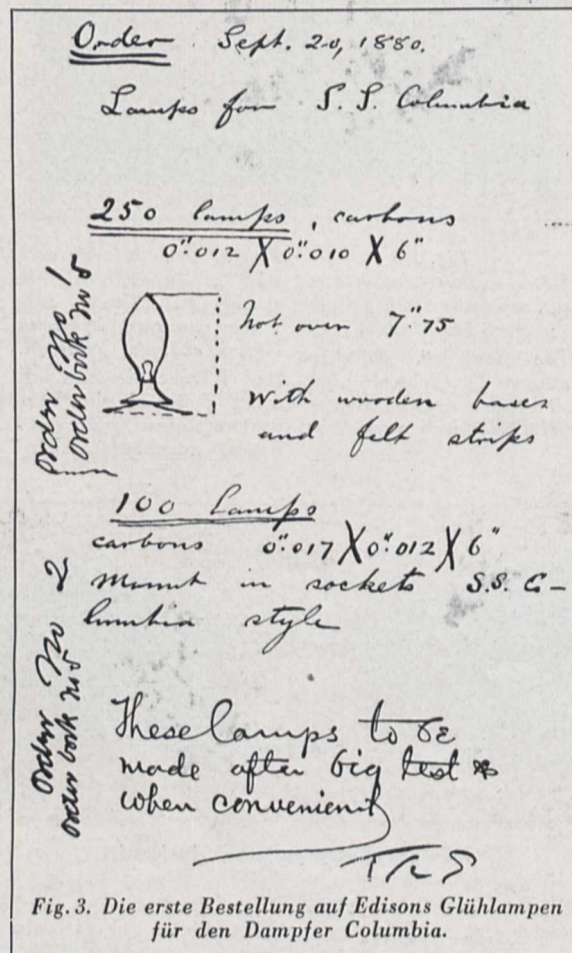 Order Sept. 20, 1880.
Lamps for S. S. Columbia
250 lamps, carbons
0".012 X 0".010 X 6"
Order No 1
Order book No 5
Not over 7".75
With wooden bases
and felt strips
100 Lamps
carbons 0".017 X 0".012 X 6"
Mount in sockets S.S. Co-
lumbia style
Order No 2
Order book No 5
These lamps to be
made after big test
when convenient
Fig. 3. Die erste Bestellung auf Edisons Glühlampen
für den Dampfer Columbia.